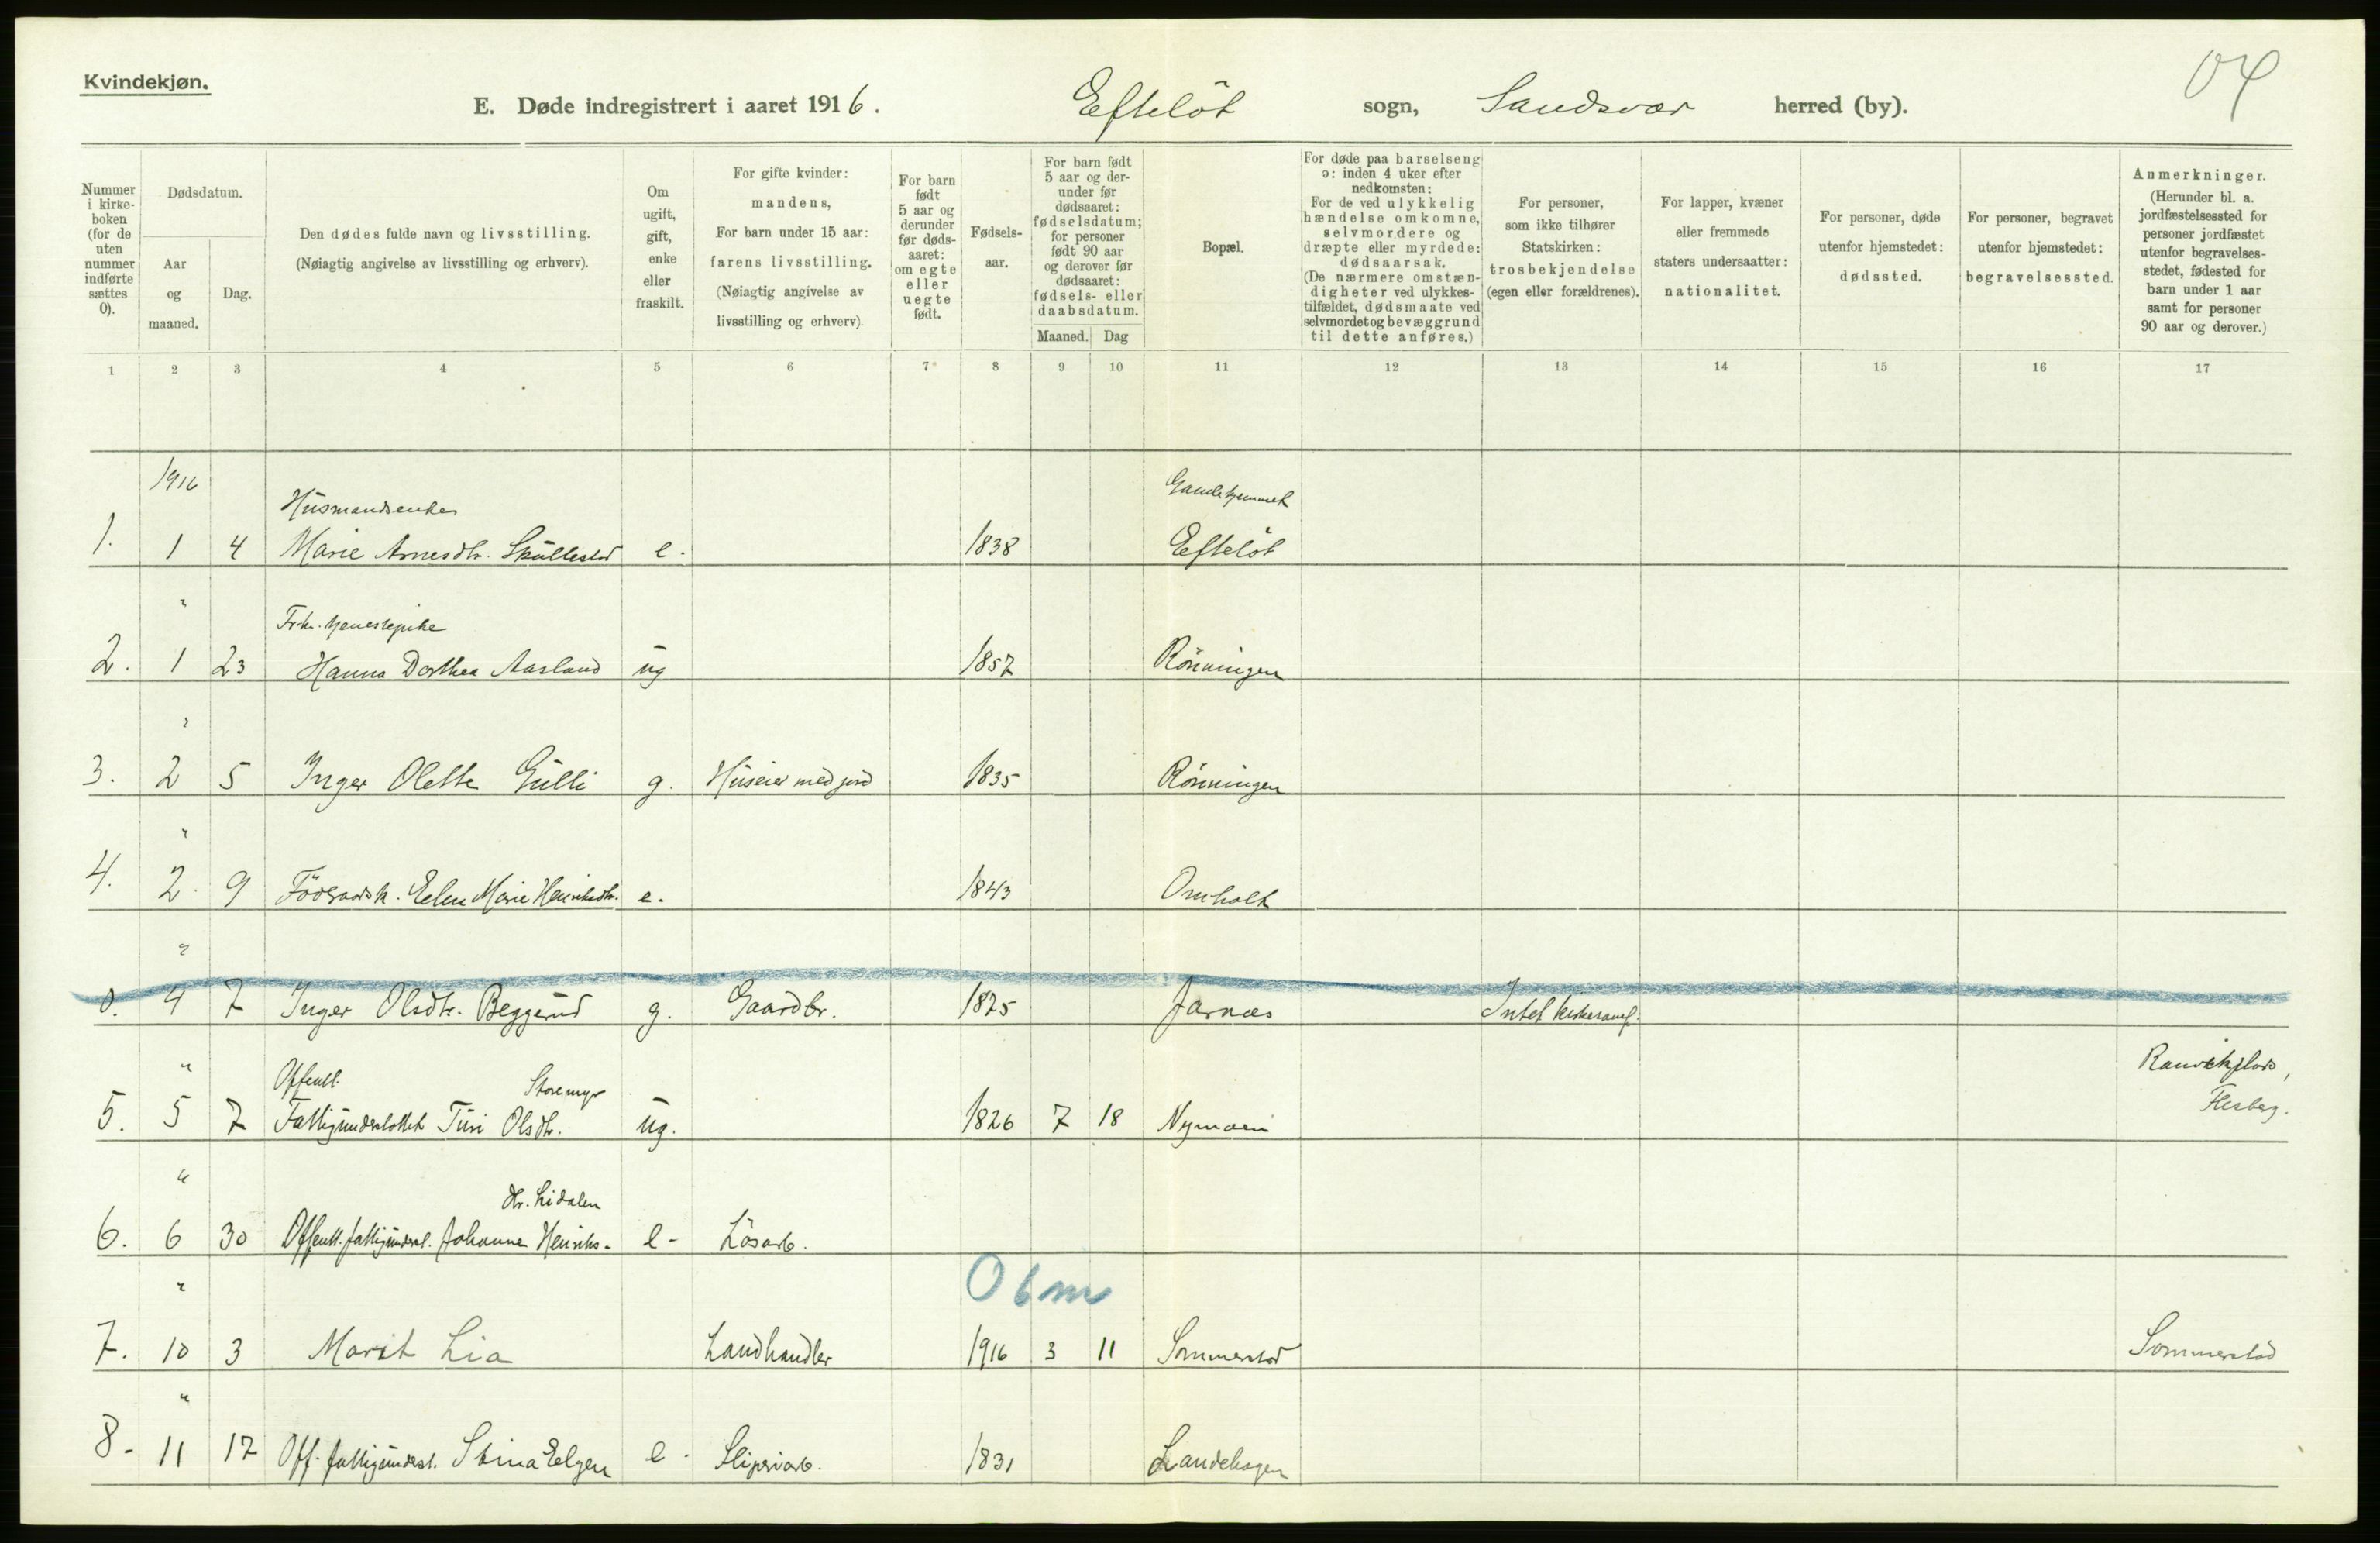 Kvindekjøn.
04
E. Døde indregistrert i aaret 1916. Efteløt sogn, Sandsvær herred (by).
Nummer i kirke-boken (for de uten nummer indførte sættes 0).
Dødsdatum.
Aar og maaned.
Dag.
Den dødes fulde navn og livsstilling.
(Nøiagtig angivelse av livsstilling og erhverv).
Om ugift, gift, enke eller fraskilt.
For gifte kvinder: mandens,
For barn under 15 aar: farens livsstilling.
(Nøiagtig angivelse av livsstilling og erhverv).
For barn født 5 aar og derunder før døds-aaret: om egte eller uegte født.
Fødsels-aar.
For barn født 5 aar og der-under før dødsaaret: fødselsdatum; for personer født 90 aar og derover før dødsaaret: fødsels- eller daabsdatum.
Maaned. Dag
Bopæl.
For døde paa barselseng ɔ: inden 4 uker efter nedkomsten: For de ved ulykkelig hændelse omkomne, selvmordere og dræpte eller myrdede: dødsaarsak. (De nærmere omstæn-digheter ved ulykkes-tilfældet, dødsmaate ved selvmordet og bevæggrund til dette anføres.)
For personer, som ikke tilhører Statskirken: trosbekjendelse (egen eller forældrenes).
For lapper, kvæner eller fremmede staters undersaatter: nationalitet.
For personer, døde utenfor hjemstedet: dødssted.
For personer, begravet utenfor hjemstedet: begravelsessted.
Anmerkninger. (Herunder bl. a. jordfæstelsessted for personer jordfæstet utenfor begravelses-stedet, fødested for barn under 1 aar samt for personer 90 aar og derover.)
1 2 3 4 5 6 7 8 9 10 11 12 13 14 15 16 17
1916 Husmandsenke Gamlehjemmet
1. 1 4 Marie Arnesdtr. Skullestad e. 1838 Efteløt
" Frh. tjenestepike
2. 1 23 Hanna Dorthea Aasland ug 1857 Rönningen
"
3. 2 5 Inger Olette Gulli g. Huseier med jord 1835 Rönningen
"
4. 2. 9 Föderaadsk. Elen Marie Henriksdtr. e. 1843 Omholt
"
0. 4 7 Inger Olsdtr. Beggerud g. Gaardbr. 1825 Jarnæs Intet kirkesamf.
" Offentl. Storemyr Ranvikplads,
5. 5 7 Fattigunderstöttet Turi Olsdtr. ug. 1826 7 18 Nymoen Flesberg.
" dtr. Lidalen
6. 6 30 Offentl. fattigunderst. Johanne Henriks- e- Lösarb.
" 0 6 m
7. 10 3 Marit Lia Landhandler 1916 3 11 Sommerstad Sommerstad
"
8- 11 17 Off. fattigunderst. Stina Elgen e. Sliperiarb. 1831 Landehagen